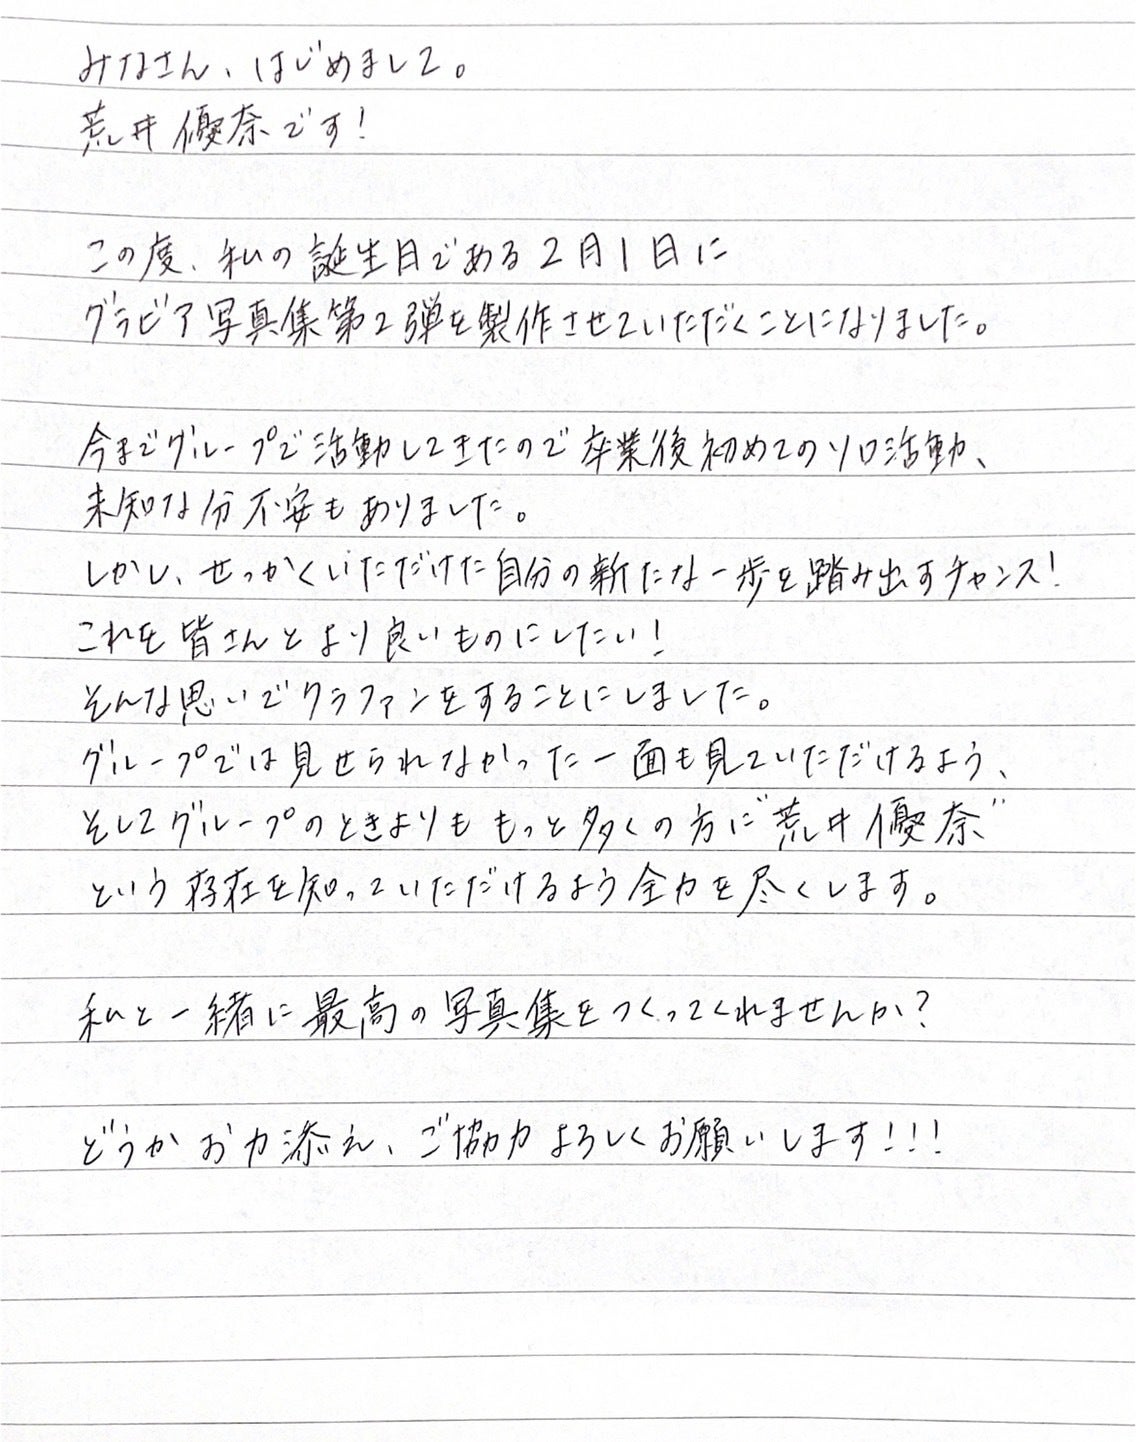 みなさん、はじめまして。
荒井優奈です!
この度、私の誕生日である2月1日に
グラビア写真集第2弾を製作させていただくことになりました。
今までグループで活動してきたので卒業後初めてのソロ活動、
未知な分不安もありました。
しかし、せっかくいただけた自分の新たな一歩を踏み出すチャンス!
これを皆さんとより良いものにしたい!
そんな思いでクラファンをすることにしました。
グループでは見せられなかった一面も見ていただけるよう、
そしてグループのときよりももっと多くの方に"荒井優奈"
という存在を知っていただけるよう全力を尽くします。
私と一緒に最高の写真集をつくってくれませんか?
どうかお力添え、ご協力よろしくお願いします!!!